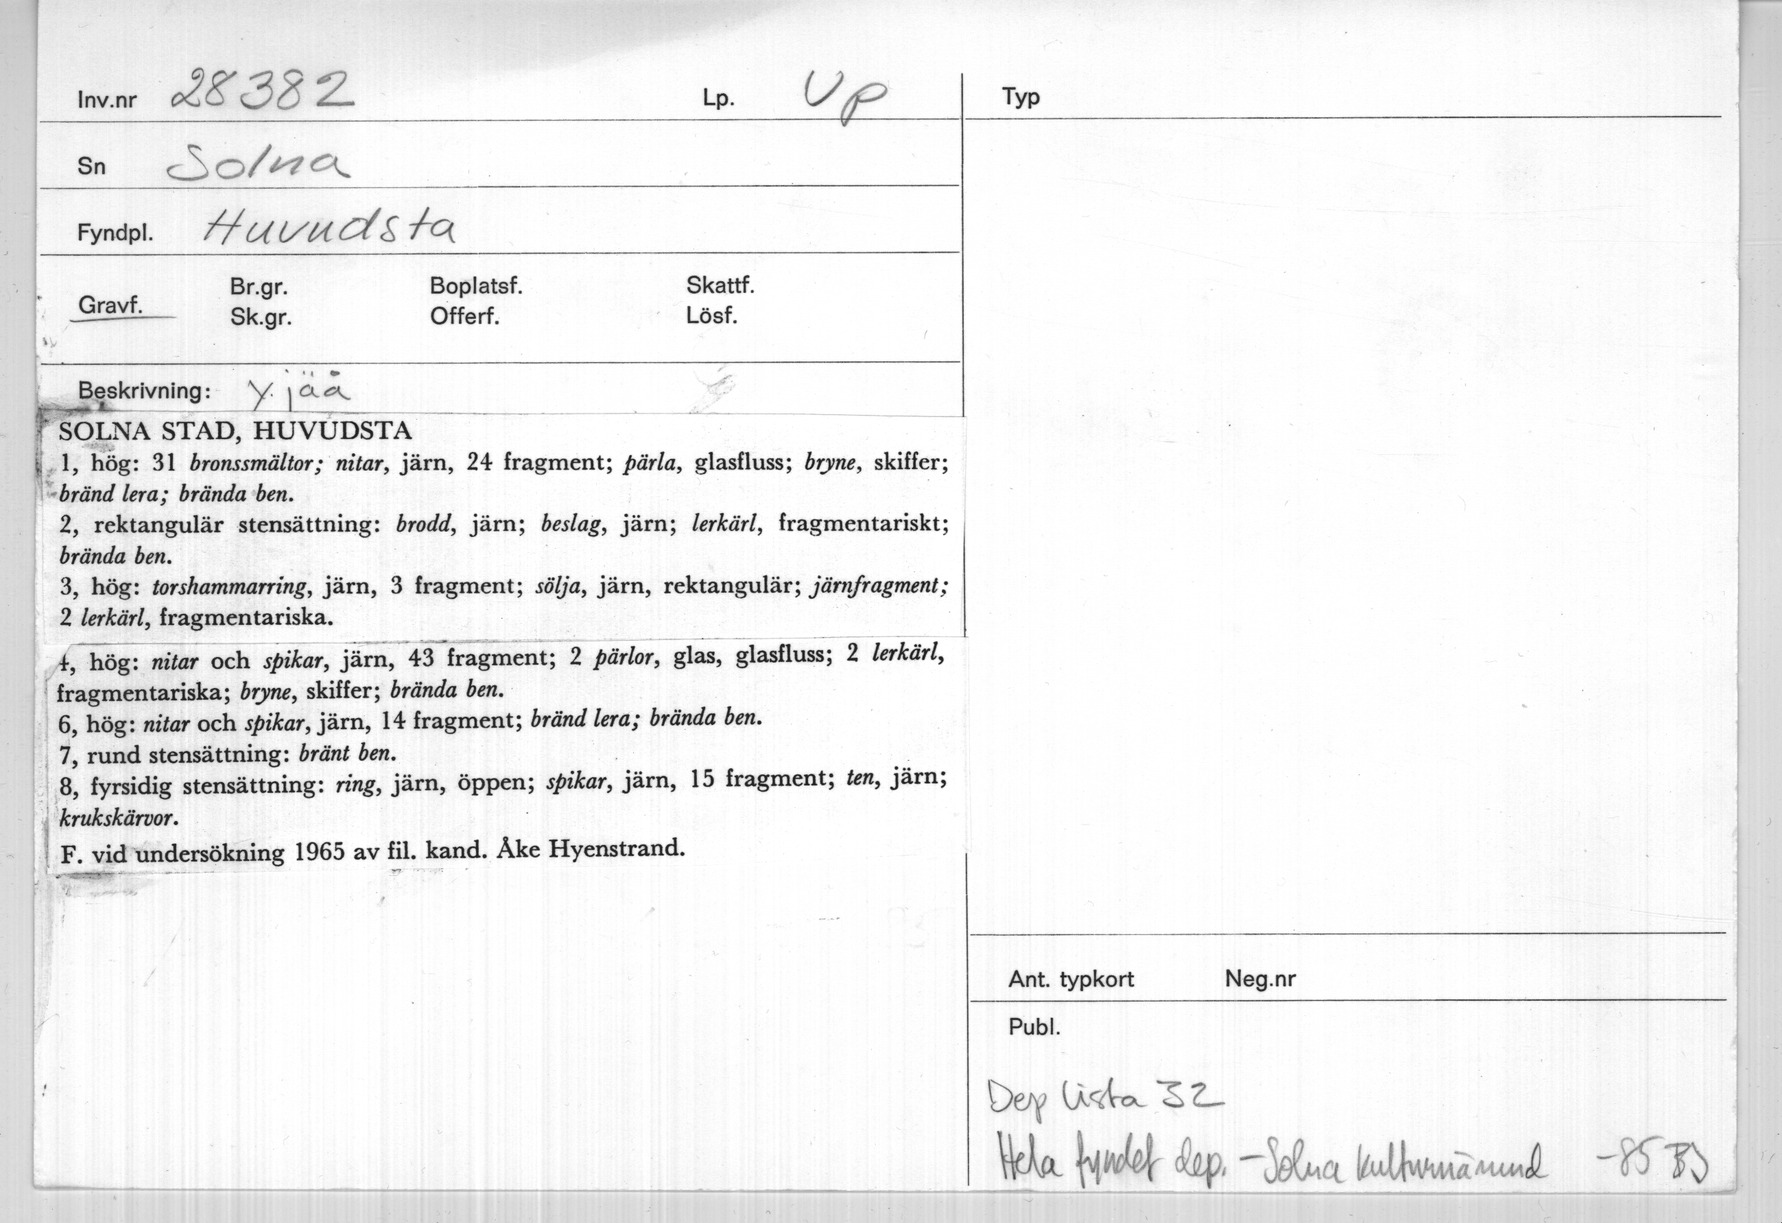 Inv.nr 28382 Lp. Up
Sn Solna
Fyndpl. Huvudsta
Gravf. Br.gr. Boplatsf. Skattf.
Sk.gr. Offerf. Lösf.
Beskrivning: y. jäå
SOLNA STAD, HUVUDSTA
1, hög: 31 bronssmältor; nitar, järn, 24 fragment; pärla, glasfluss; bryne, skiffer;
bränd lera; brända ben.
2, rektangulär stensättning: brodd, järn; beslag, järn; lerkärl, fragmentariskt;
brända ben.
3, hög: torshammarring, järn, 3 fragment; sölja, järn, rektangulär; järnfragment;
2 lerkärl, fragmentariska.
4, hög: nitar och spikar, järn, 43 fragment; 2 pärlor, glas, glasfluss; 2 lerkärl,
fragmentariska; bryne, skiffer; brända ben.
6, hög: nitar och spikar, järn, 14 fragment; bränd lera; brända ben.
7, rund stensättning: bränt ben.
8, fyrsidig stensättning: ring, järn, öppen; spikar, järn, 15 fragment; ten, järn;
krukskärvor.
F. vid undersökning 1965 av fil. kand. Åke Hyenstrand.
Typ
Ant. typkort Neg.nr
Publ.
Dep lista 32
Hela fyndet dep. – Solna kulturnämnd -85